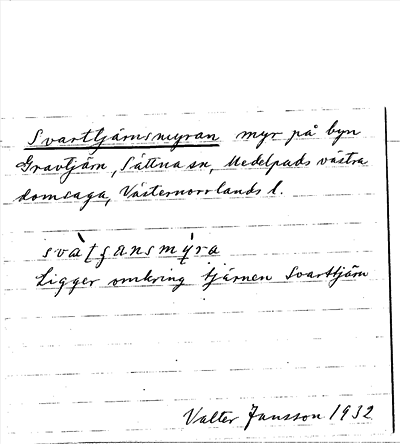 Svarttjärnsmyran myr på byn
Gravtjärn, Sättna sn, Medelpads västra
domsaga, Västernorrlands l.
svàʈʂansmýra
Ligger omkring tjärnen Svarttjärn
Valter Jansson 1932